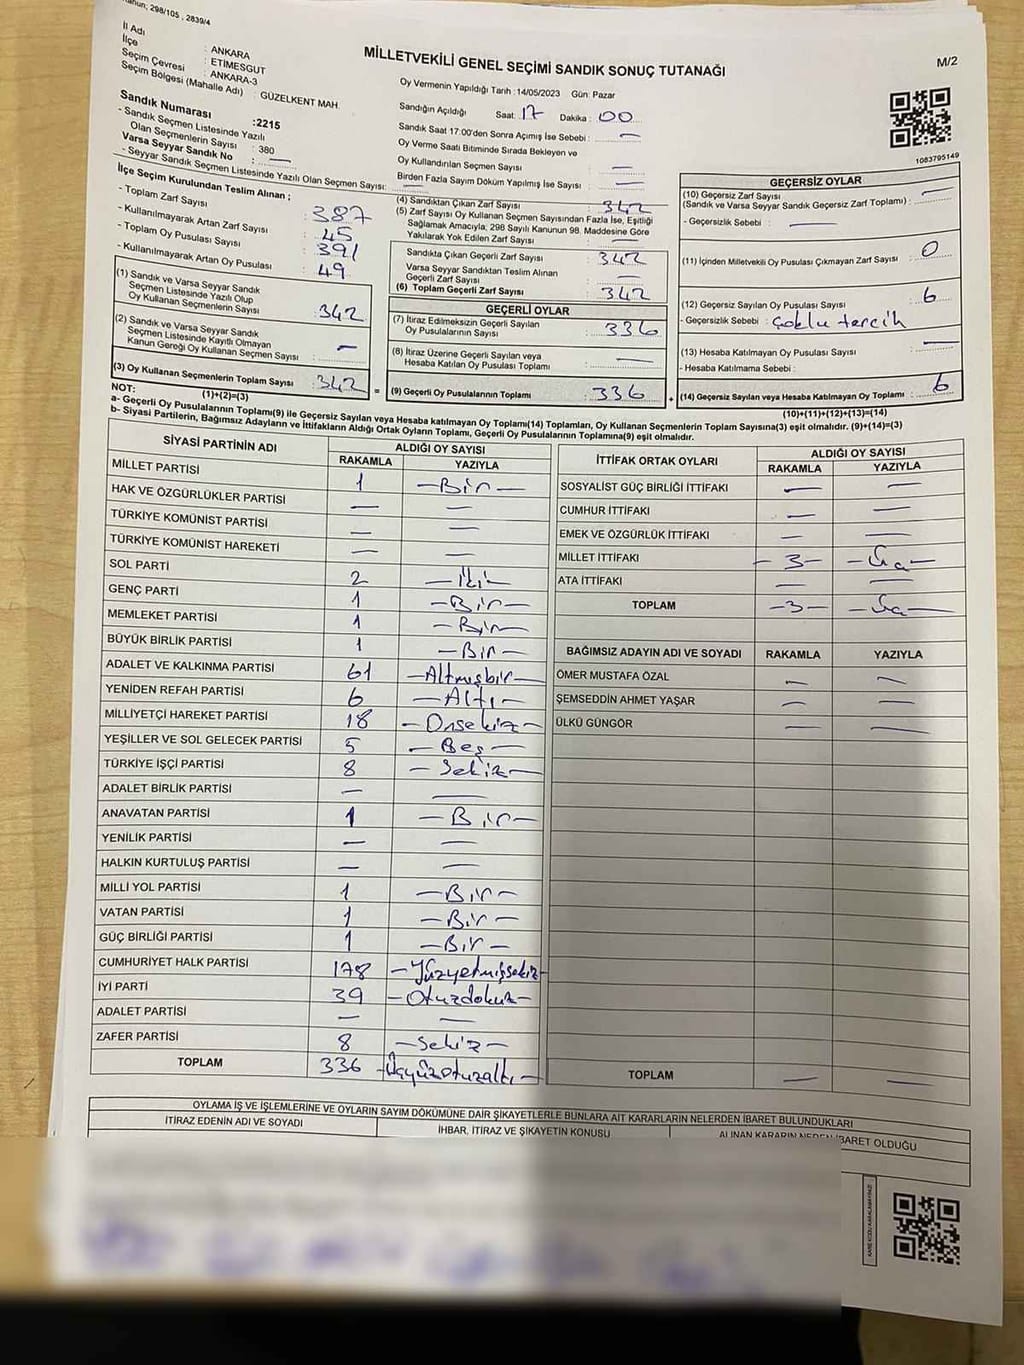 298/105 , 2839/4
İl Adı : ANKARA
İlçe : ETİMESGUT
Seçim Çevresi : ANKARA-3
Seçim Bölgesi (Mahalle Adı) : GÜZELKENT MAH
MİLLETVEKİLİ GENEL SEÇİMİ SANDIK SONUÇ TUTANAĞI
M/2
Oy Vermenin Yapıldığı Tarih : 14/05/2023 Gün: Pazar
Sandığın Açıldığı Saat: 17 Dakika : 00
Sandık Saat 17:00'den Sonra Açımış İse Sebebi : —
Oy Verme Saati Bitiminde Sırada Bekleyen ve
Oy Kullandırılan Seçmen Sayısı —
Birden Fazla Sayım Döküm Yapılmış İse Sayısı : —
1083795149
Sandık Numarası : 2215
- Sandık Seçmen Listesinde Yazılı
Olan Seçmenlerin Sayısı : 380
Varsa Seyyar Sandık No : —
- Seyyar Sandık Seçmen Listesinde Yazılı Olan Seçmen Sayısı: —
İlçe Seçim Kurulundan Teslim Alınan ;
- Toplam Zarf Sayısı : 387
- Kullanılmayarak Artan Zarf Sayısı : 45
- Toplam Oy Pusulası Sayısı : 391
- Kullanılmayarak Artan Oy Pusulası : 49
(1) Sandık ve Varsa Seyyar Sandık
Seçmen Listesinde Yazılı Olup
Oy Kullanan Seçmenlerin Sayısı : 342
(2) Sandık ve Varsa Seyyar Sandık
Seçmen Listesinde Kayıtlı Olmayan
Kanun Gereği Oy Kullanan Seçmen Sayısı : —
(3) Oy Kullanan Seçmenlerin Toplam Sayısı : 342
(1)+(2)=(3)
(4) Sandıktan Çıkan Zarf Sayısı : 342
(5) Zarf Sayısı Oy Kullanan Seçmen Sayısından Fazla İse, Eşitliği
Sağlamak Amacıyla; 298 Sayılı Kanunun 98. Maddesine Göre
Yakılarak Yok Edilen Zarf Sayısı : —
Sandıkta Çıkan Geçerli Zarf Sayısı : 342
Varsa Seyyar Sandıktan Teslim Alınan
Geçerli Zarf Sayısı : —
(6) Toplam Geçerli Zarf Sayısı : 342
GEÇERLİ OYLAR
(7) İtiraz Edilmeksizin Geçerli Sayılan
Oy Pusulalarının Sayısı : 336
(8) İtiraz Üzerine Geçerli Sayılan veya
Hesaba Katılan Oy Pusulası Toplamı : —
= (9) Geçerli Oy Pusulalarının Toplamı : 336
GEÇERSİZ OYLAR
(10) Geçersiz Zarf Sayısı
(Sandık ve Varsa Seyyar Sandık Geçersiz Zarf Toplamı) : —
- Geçersizlik Sebebi : —
(11) İçinden Milletvekili Oy Pusulası Çıkmayan Zarf Sayısı : 0
(12) Geçersiz Sayılan Oy Pusulası Sayısı : 6
- Geçersizlik Sebebi : çoklu tercih
(13) Hesaba Katılmayan Oy Pusulası Sayısı : —
- Hesaba Katılmama Sebebi :
+ (14) Geçersiz Sayılan veya Hesaba Katılmayan Oy Toplamı : 6
(10)+(11)+(12)+(13)=(14)
NOT:
a- Geçerli Oy Pusulalarının Toplamı(9) ile Geçersiz Sayılan veya Hesaba katılmayan Oy Toplamı(14) Toplamları, Oy Kullanan Seçmenlerin Toplam Sayısına(3) eşit olmalıdır. (9)+(14)=(3)
b- Siyasi Partilerin, Bağımsız Adayların ve İttifakların Aldığı Ortak Oyların Toplamı, Geçerli Oy Pusulalarının Toplamına(9) eşit olmalıdır.
SİYASİ PARTİNİN ADI ALDIĞI OY SAYISI
RAKAMLA YAZIYLA
MİLLET PARTİSİ 1 —Bir—
HAK VE ÖZGÜRLÜKLER PARTİSİ — —
TÜRKİYE KOMÜNİST PARTİSİ — —
TÜRKİYE KOMÜNİST HAREKETİ — —
SOL PARTİ 2 —İki—
GENÇ PARTİ 1 —Bir—
MEMLEKET PARTİSİ 1 —Bir—
BÜYÜK BİRLİK PARTİSİ 1 —Bir—
ADALET VE KALKINMA PARTİSİ 61 —Altmışbir—
YENİDEN REFAH PARTİSİ 6 —Altı—
MİLLİYETÇİ HAREKET PARTİSİ 18 —Onsekiz—
YEŞİLLER VE SOL GELECEK PARTİSİ 5 —Beş—
TÜRKİYE İŞÇİ PARTİSİ 8 —Sekiz—
ADALET BİRLİK PARTİSİ — —
ANAVATAN PARTİSİ 1 —Bir—
YENİLİK PARTİSİ — —
HALKIN KURTULUŞ PARTİSİ — —
MİLLİ YOL PARTİSİ 1 —Bir—
VATAN PARTİSİ 1 —Bir—
GÜÇ BİRLİĞİ PARTİSİ 1 —Bir—
CUMHURİYET HALK PARTİSİ 178 —Yüzyetmişsekiz—
İYİ PARTİ 39 —Otuzdokuz—
ADALET PARTİSİ — —
ZAFER PARTİSİ 8 —Sekiz—
TOPLAM 336 —Üçyüzotuzaltı—
İTTİFAK ORTAK OYLARI ALDIĞI OY SAYISI
RAKAMLA YAZIYLA
SOSYALİST GÜÇ BİRLİĞİ İTTİFAKI — —
CUMHUR İTTİFAKI — —
EMEK VE ÖZGÜRLÜK İTTİFAKI — —
MİLLET İTTİFAKI —3— —Üç—
ATA İTTİFAKI — —
TOPLAM —3— —Üç—
BAĞIMSIZ ADAYIN ADI VE SOYADI RAKAMLA YAZIYLA
ÖMER MUSTAFA ÖZAL — —
ŞEMSEDDİN AHMET YAŞAR — —
ÜLKÜ GÜNGÖR — —
TOPLAM — —
OYLAMA İŞ VE İŞLEMLERİNE VE OYLARIN SAYIM DÖKÜMÜNE DAİR ŞİKAYETLERLE BUNLARA AİT KARARLARIN NELERDEN İBARET BULUNDUKLARI
İTİRAZ EDENİN ADI VE SOYADI İHBAR, İTİRAZ VE ŞİKAYETİN KONUSU ALINAN KARARIN NEDEN İBARET OLDUĞU